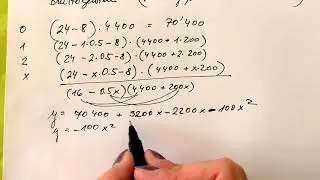 0 (24-8) · 4400 = 70'400
1 (24 - 1·0.5-8) · (4400 + 1·200)
2 (24 - 2·0.5-8) · (4400+2·200)
x (24 - x·0.5-8) · (4400 + x·200)
(16 - 0.5x)(4400 + 200x)
y = 70400 + 3200x - 2200x - 100x²
y = -100x²